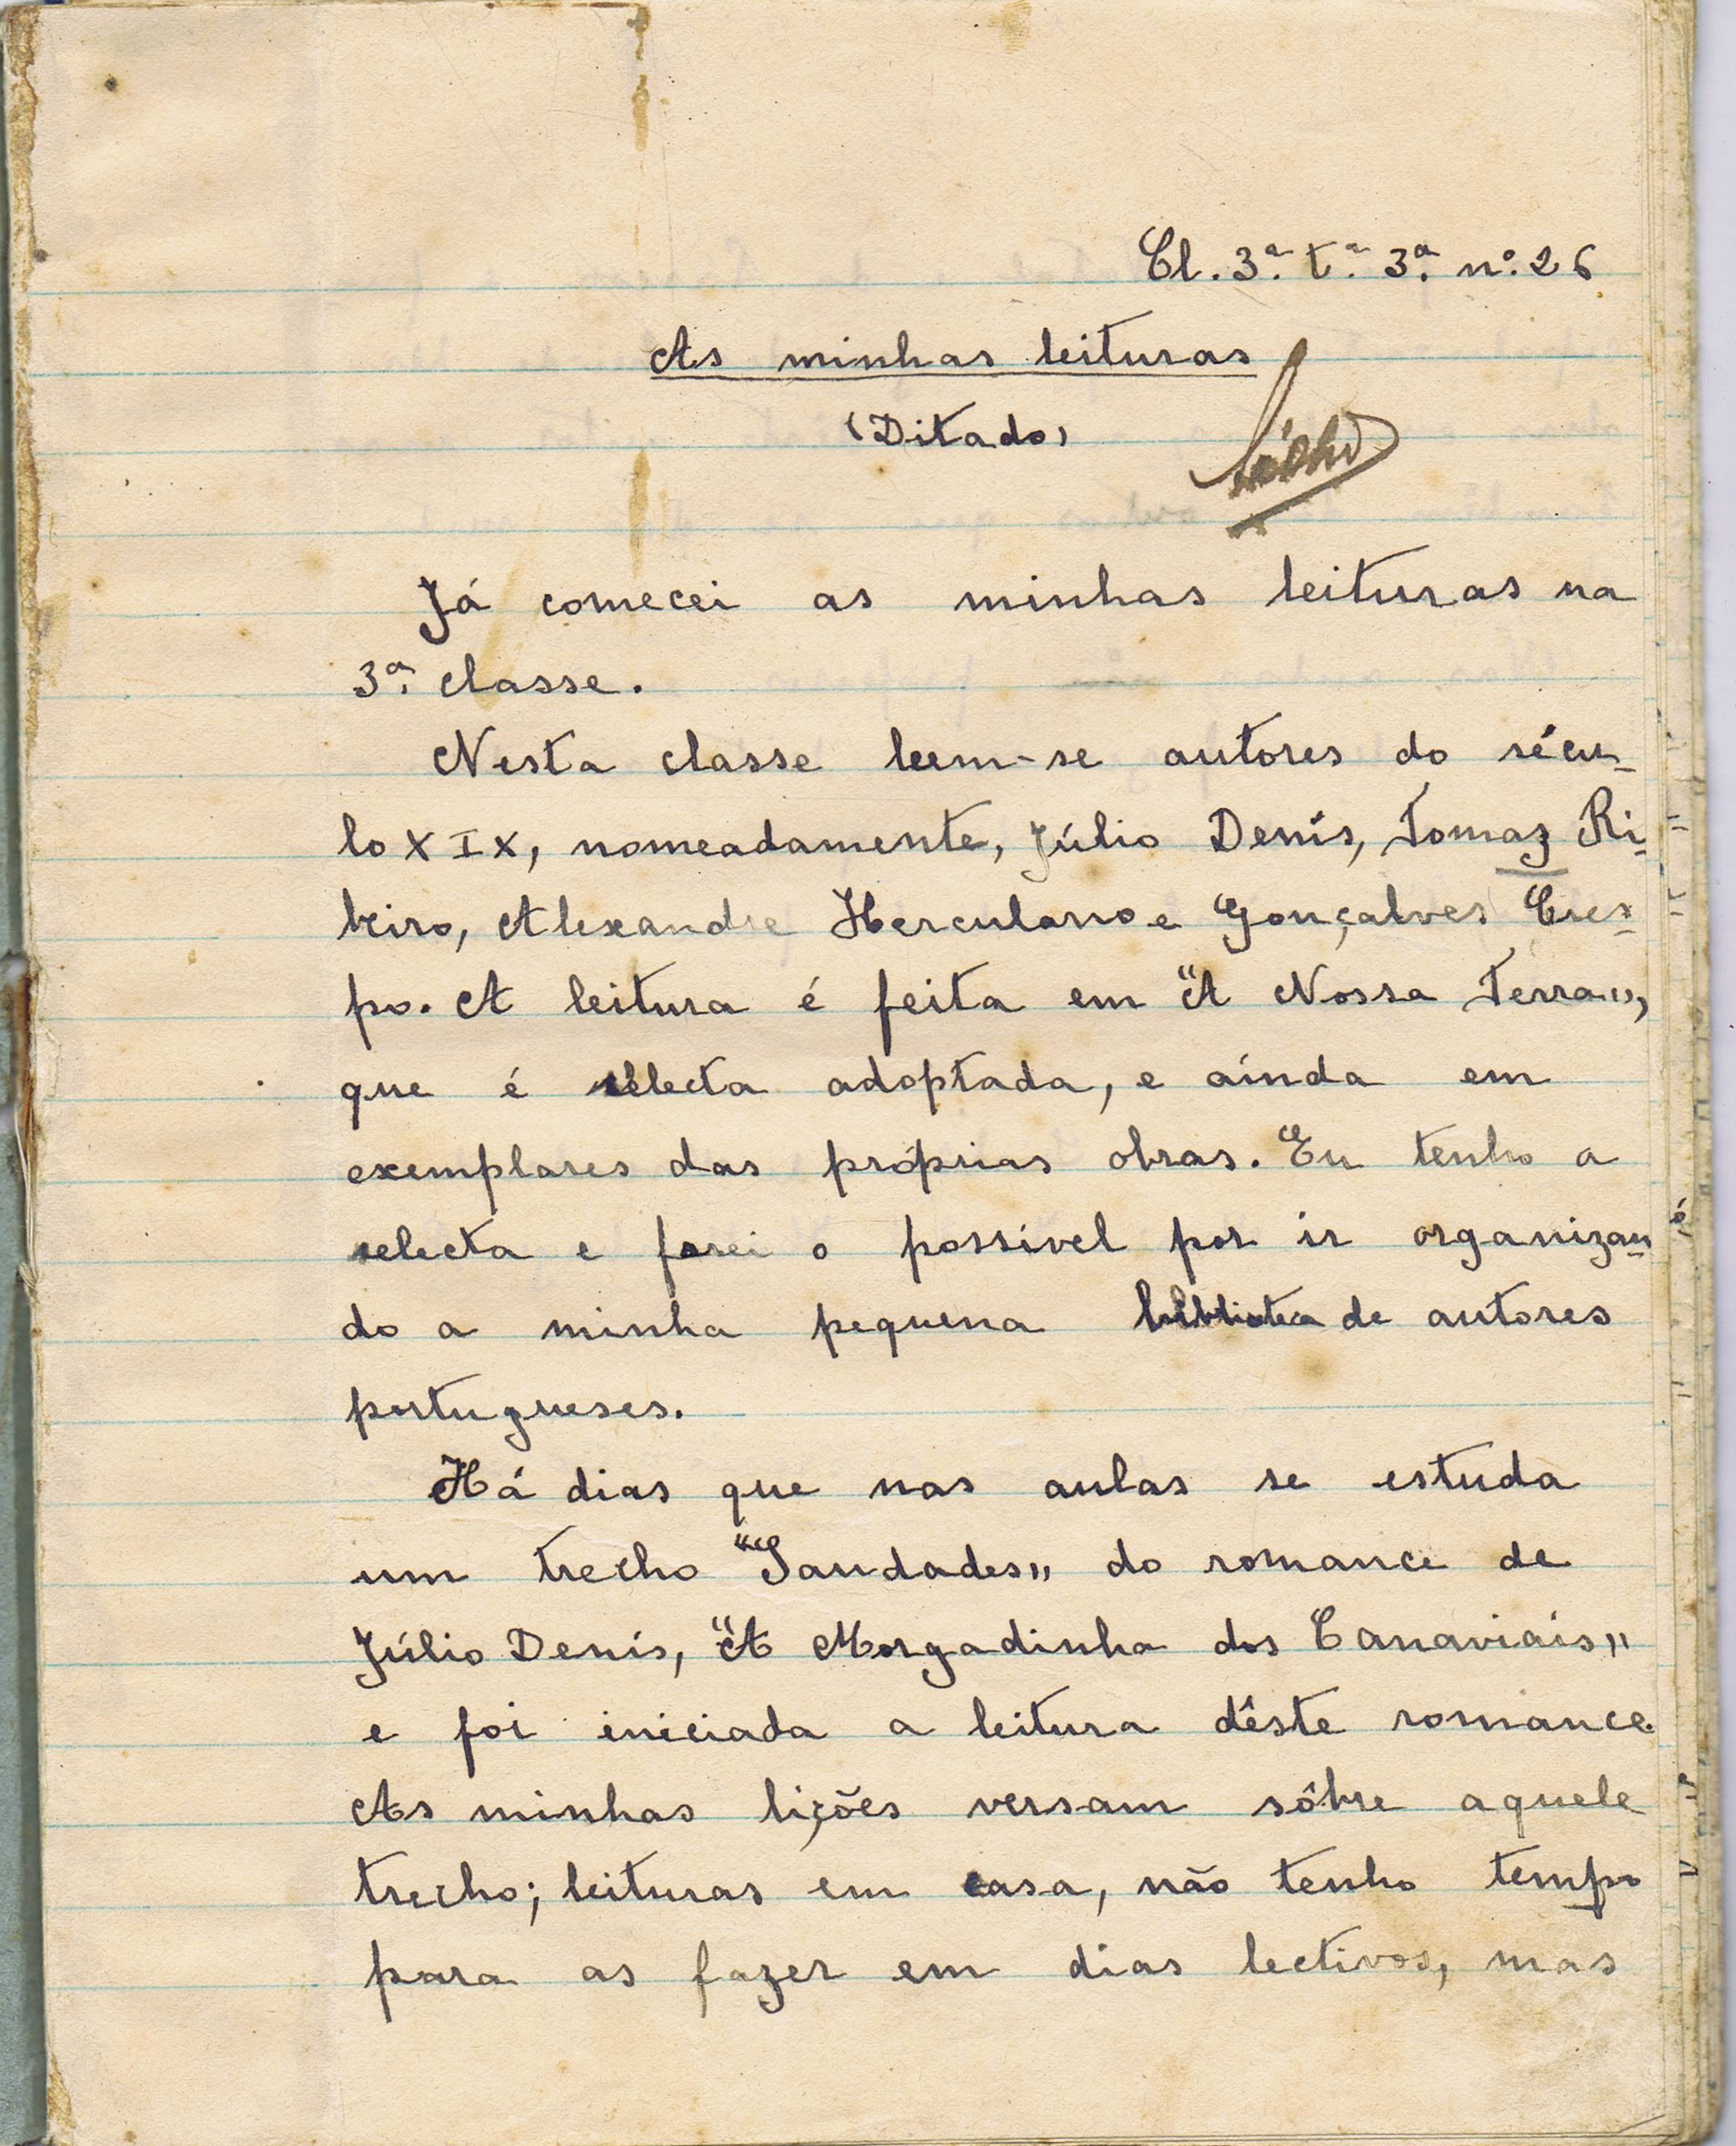 Cl. 3.ª t.ª 3.ª n.º 26
As minhas leituras
(Ditado)
Já comecei as minhas leituras na
3.ª classe.
Nesta classe leem-se autores do sécu-
lo XIX, nomeadamente, Júlio Denís, Tomaz Ri-
beiro, Alexandre Herculano e Gonçalves Cres-
po. A leitura é feita em "A Nossa Terra",
que é selecta adoptada, e aínda em
exemplares das próprias obras. Eu tenho a
selecta e farei o possível por ír organizan-
do a minha pequena biblioteca de autores
portugueses.
Há dias que nas aulas se estuda
um trecho "Saudades" do romance de
Júlio Denís, "A Morgadinha dos Canaviáis"
e foi iniciada a leitura dêste romance.
As minhas lições versam sôbre aquele
trecho; leituras em casa, não tenho tempo
para as fazer em dias lectivos, mas